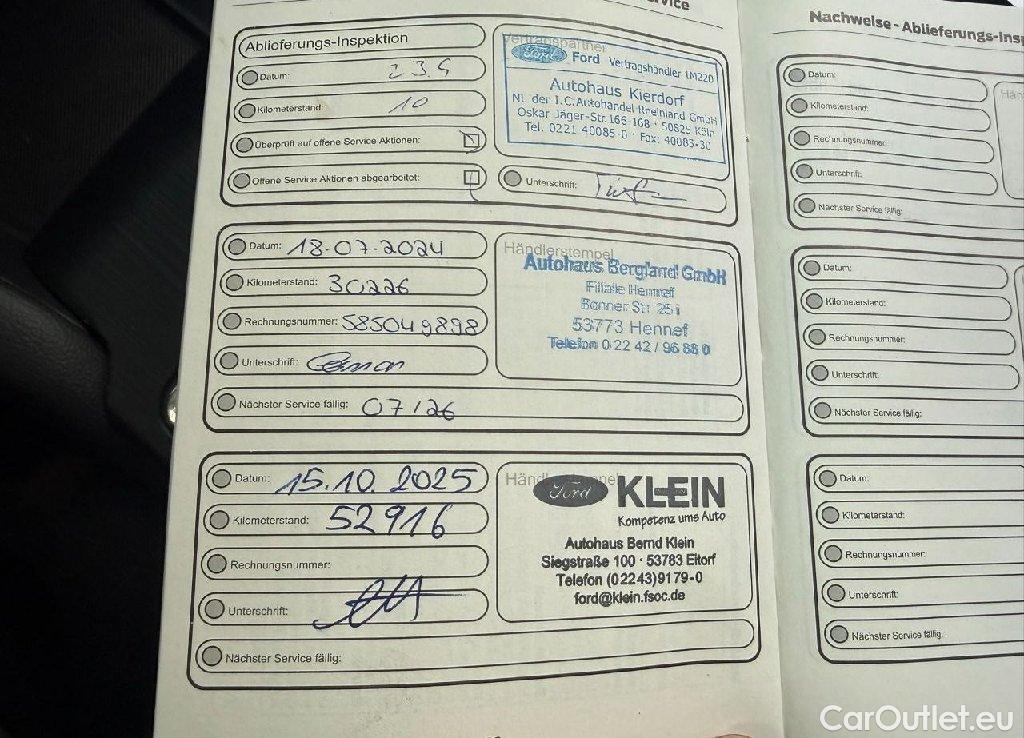 ervice
Ablieferungs-Inspektion
Datum: 23.4
Kilometerstand: 10
Überprüft auf offene Service Aktionen:
Offene Service Aktionen abgearbeitet:
Vertragspartner
Ford Ford Vertragshändler LM220
Autohaus Kierdorf
NL der J.C. Autohandel Rheinland GmbH
Oskar-Jäger-Str. 166-168 · 50825 Köln
Tel. 0221 40085-0 · Fax: 40085-30
Unterschrift:
Datum: 18.07.2024
Kilometerstand: 30226
Rechnungsnummer: 585049898
Unterschrift:
Nächster Service fällig: 07/26
Händlerstempel
Autohaus Bergland GmbH
Filiale Hennef
Bonner Str. 251
53773 Hennef
Telefon 0 22 42 / 96 88 0
Datum: 15.10.2025
Kilometerstand: 52916
Rechnungsnummer:
Unterschrift:
Nächster Service fällig:
Ford KLEIN
Kompetenz ums Auto
Autohaus Bernd Klein
Siegstraße 100 · 53783 Eitorf
Telefon (02243)9179-0
ford@klein.fsoc.de
Nachweise - Ablieferungs-Insp
Datum:
Kilometerstand:
Rechnungsnummer:
Unterschrift:
Nächster Service fällig:
Hän
Datum:
Kilometerstand:
Rechnungsnummer:
Unterschrift:
Nächster Service fällig:
Datum:
Kilometerstand:
Rechnungsnummer:
Unterschrift:
Nächster Service fällig:
CarOutlet.eu